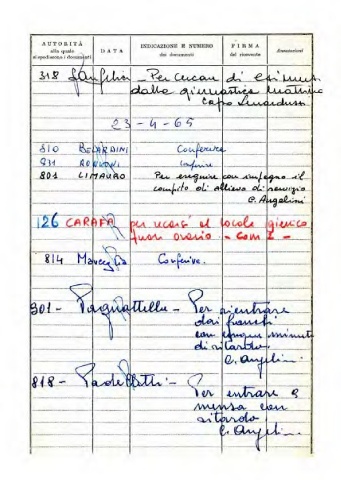 AUTORITÀ DATA INDICAZIONE E NUMERO FIRMA Annotazioni
alla quale dei documenti del ricevente
si spediscono i documenti
318 - Per cercare di esimersi
dalla ginnastica mattutina
Capo
23-4-65
810 BELARDINI Conferire
831 Conferire
801 LIMAURO Per eseguire con impegno il
compito di allievo di servizio
C. Angelini
126 CARAFA per recarsi al locale igienico
fuori orario - Com I -
814 Conferire.
801 - Pagnattella - Per rientrare
dai franchi
con cinque minuti
di ritardo.
C. Angelini
818 - Paoletti - Per entrare a
mensa con
ritardo.
C. Angelini